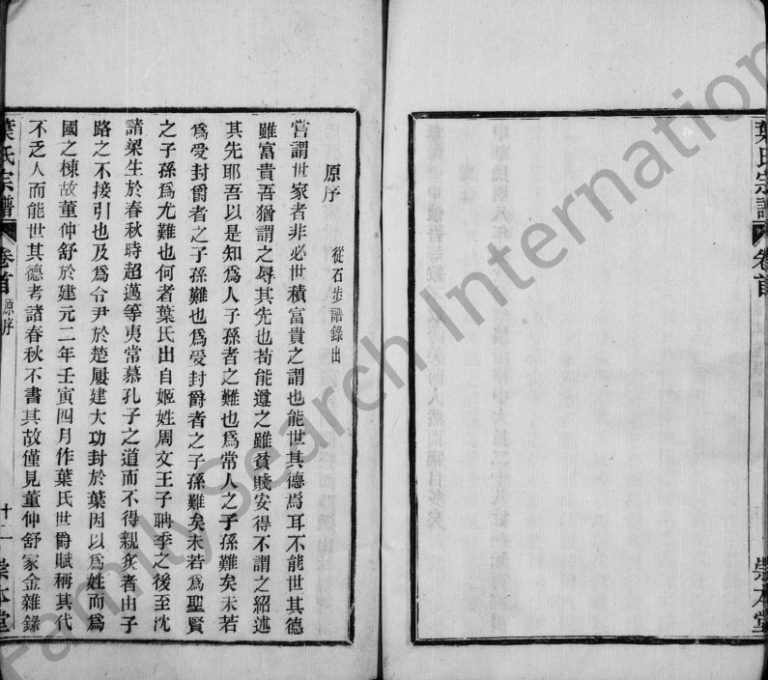 葉氏宗譜 卷首 崇本堂
原序 從石步譜錄出
嘗謂世家者非必世積富貴之謂也能世其德焉耳不能世其德
雖富貴吾猶謂之辱其先也苟能遵之雖貧賤安得不謂之紹述
其先耶吾以是知為人子孫者之難也為常人之子孫難矣未若
為受封爵者之子孫難也為受封爵者之子孫難矣未若為聖賢
之子孫為尤難也何者葉氏出自姬姓周文王子聃季之後至沈
諸梁生於春秋時超邁等夷常慕孔子之道而不得親炙者由子
路之不接引也及為令尹於楚屢建大功封於葉因以為姓而為
國之棟故董仲舒於建元二年壬寅四月作葉氏世爵賦稱其代
不乏人而能世其德考諸春秋不書其故僅見董仲舒家金雜錄
葉氏宗譜 卷首 原序 十二 崇本堂
Family Search International